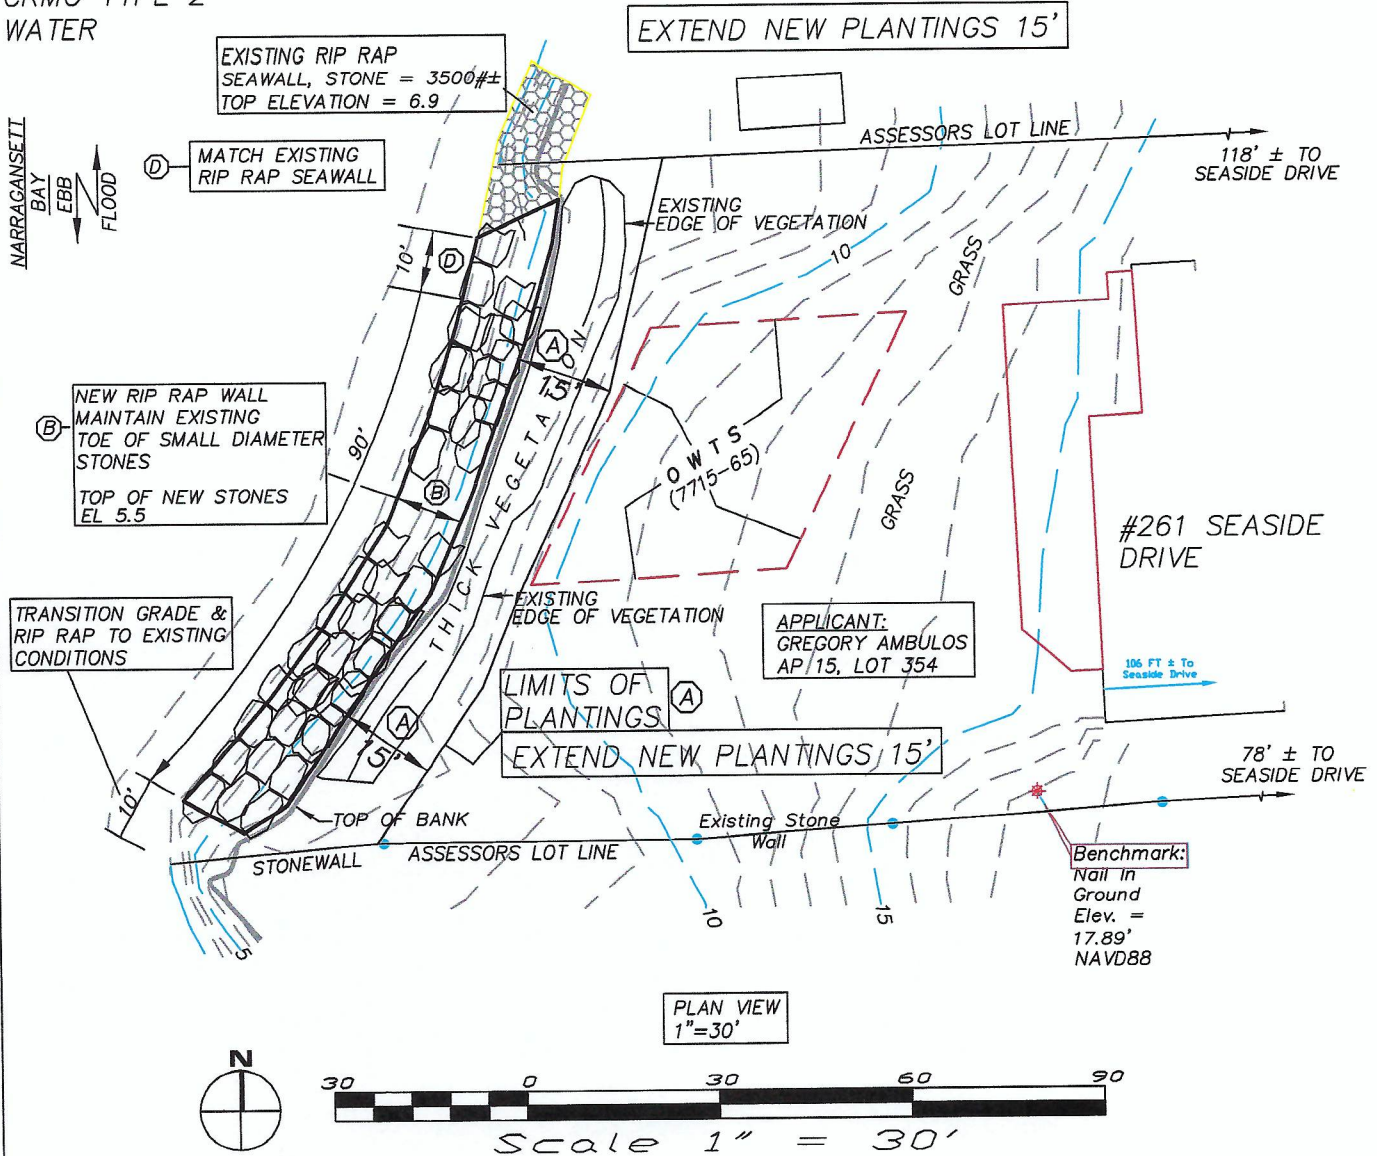 WATER
EXTEND NEW PLANTINGS 15'
EXISTING RIP RAP
SEAWALL, STONE = 3500#±
TOP ELEVATION = 6.9
NARRAGANSETT
BAY
EBB
FLOOD
D
MATCH EXISTING
RIP RAP SEAWALL
ASSESSORS LOT LINE
118' ± TO
SEASIDE DRIVE
EXISTING
EDGE OF VEGETATION
10'
D
10
GRASS
A
15'
B
NEW RIP RAP WALL
MAINTAIN EXISTING
TOE OF SMALL DIAMETER
STONES
TOP OF NEW STONES
EL 5.5
90'
B
THICK VEGETATION
OWTS
(7715-65)
GRASS
#261 SEASIDE
DRIVE
TRANSITION GRADE &
RIP RAP TO EXISTING
CONDITIONS
EXISTING
EDGE OF VEGETATION
APPLICANT:
GREGORY AMBULOS
AP 15, LOT 354
106 FT ± To
Seaside Drive
LIMITS OF
PLANTINGS
A
A
15'
EXTEND NEW PLANTINGS 15'
78' ± TO
SEASIDE DRIVE
10'
TOP OF BANK
Existing Stone
Wall
STONEWALL
ASSESSORS LOT LINE
Benchmark:
Nail In
Ground
Elev. =
17.89'
NAVD88
5
10
15
PLAN VIEW
1"=30'
N
30 0 30 60 90
Scale 1" = 30'